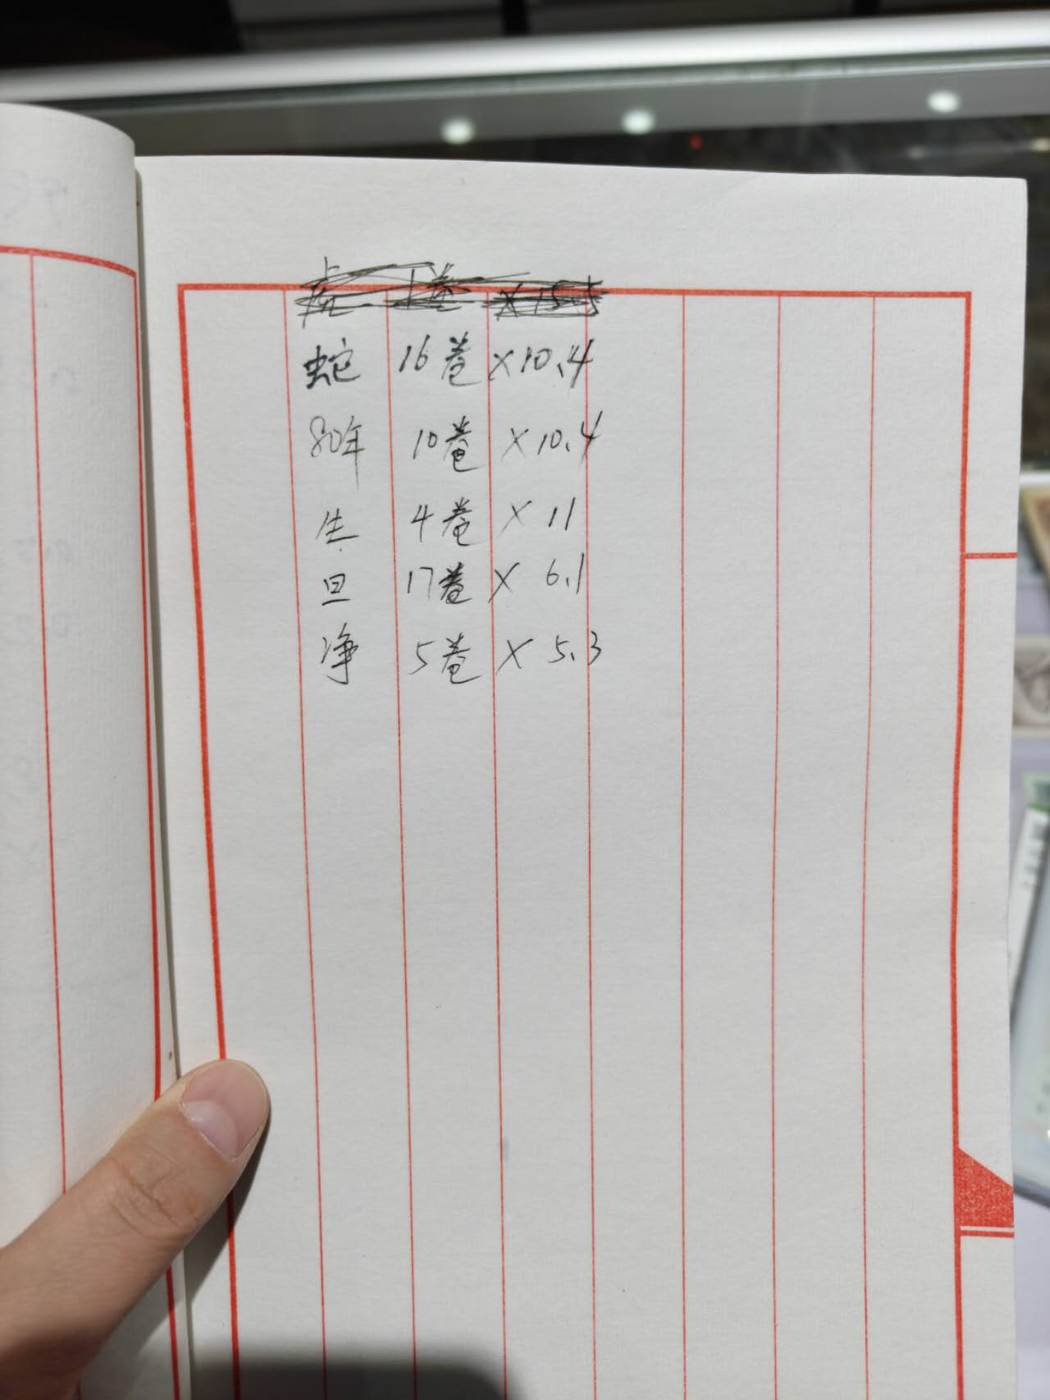 蛇 16卷 ×10.4
80年 10卷 ×10.4
生 4卷 ×11
旦 17卷 × 6.1
净 5卷 × 5.3